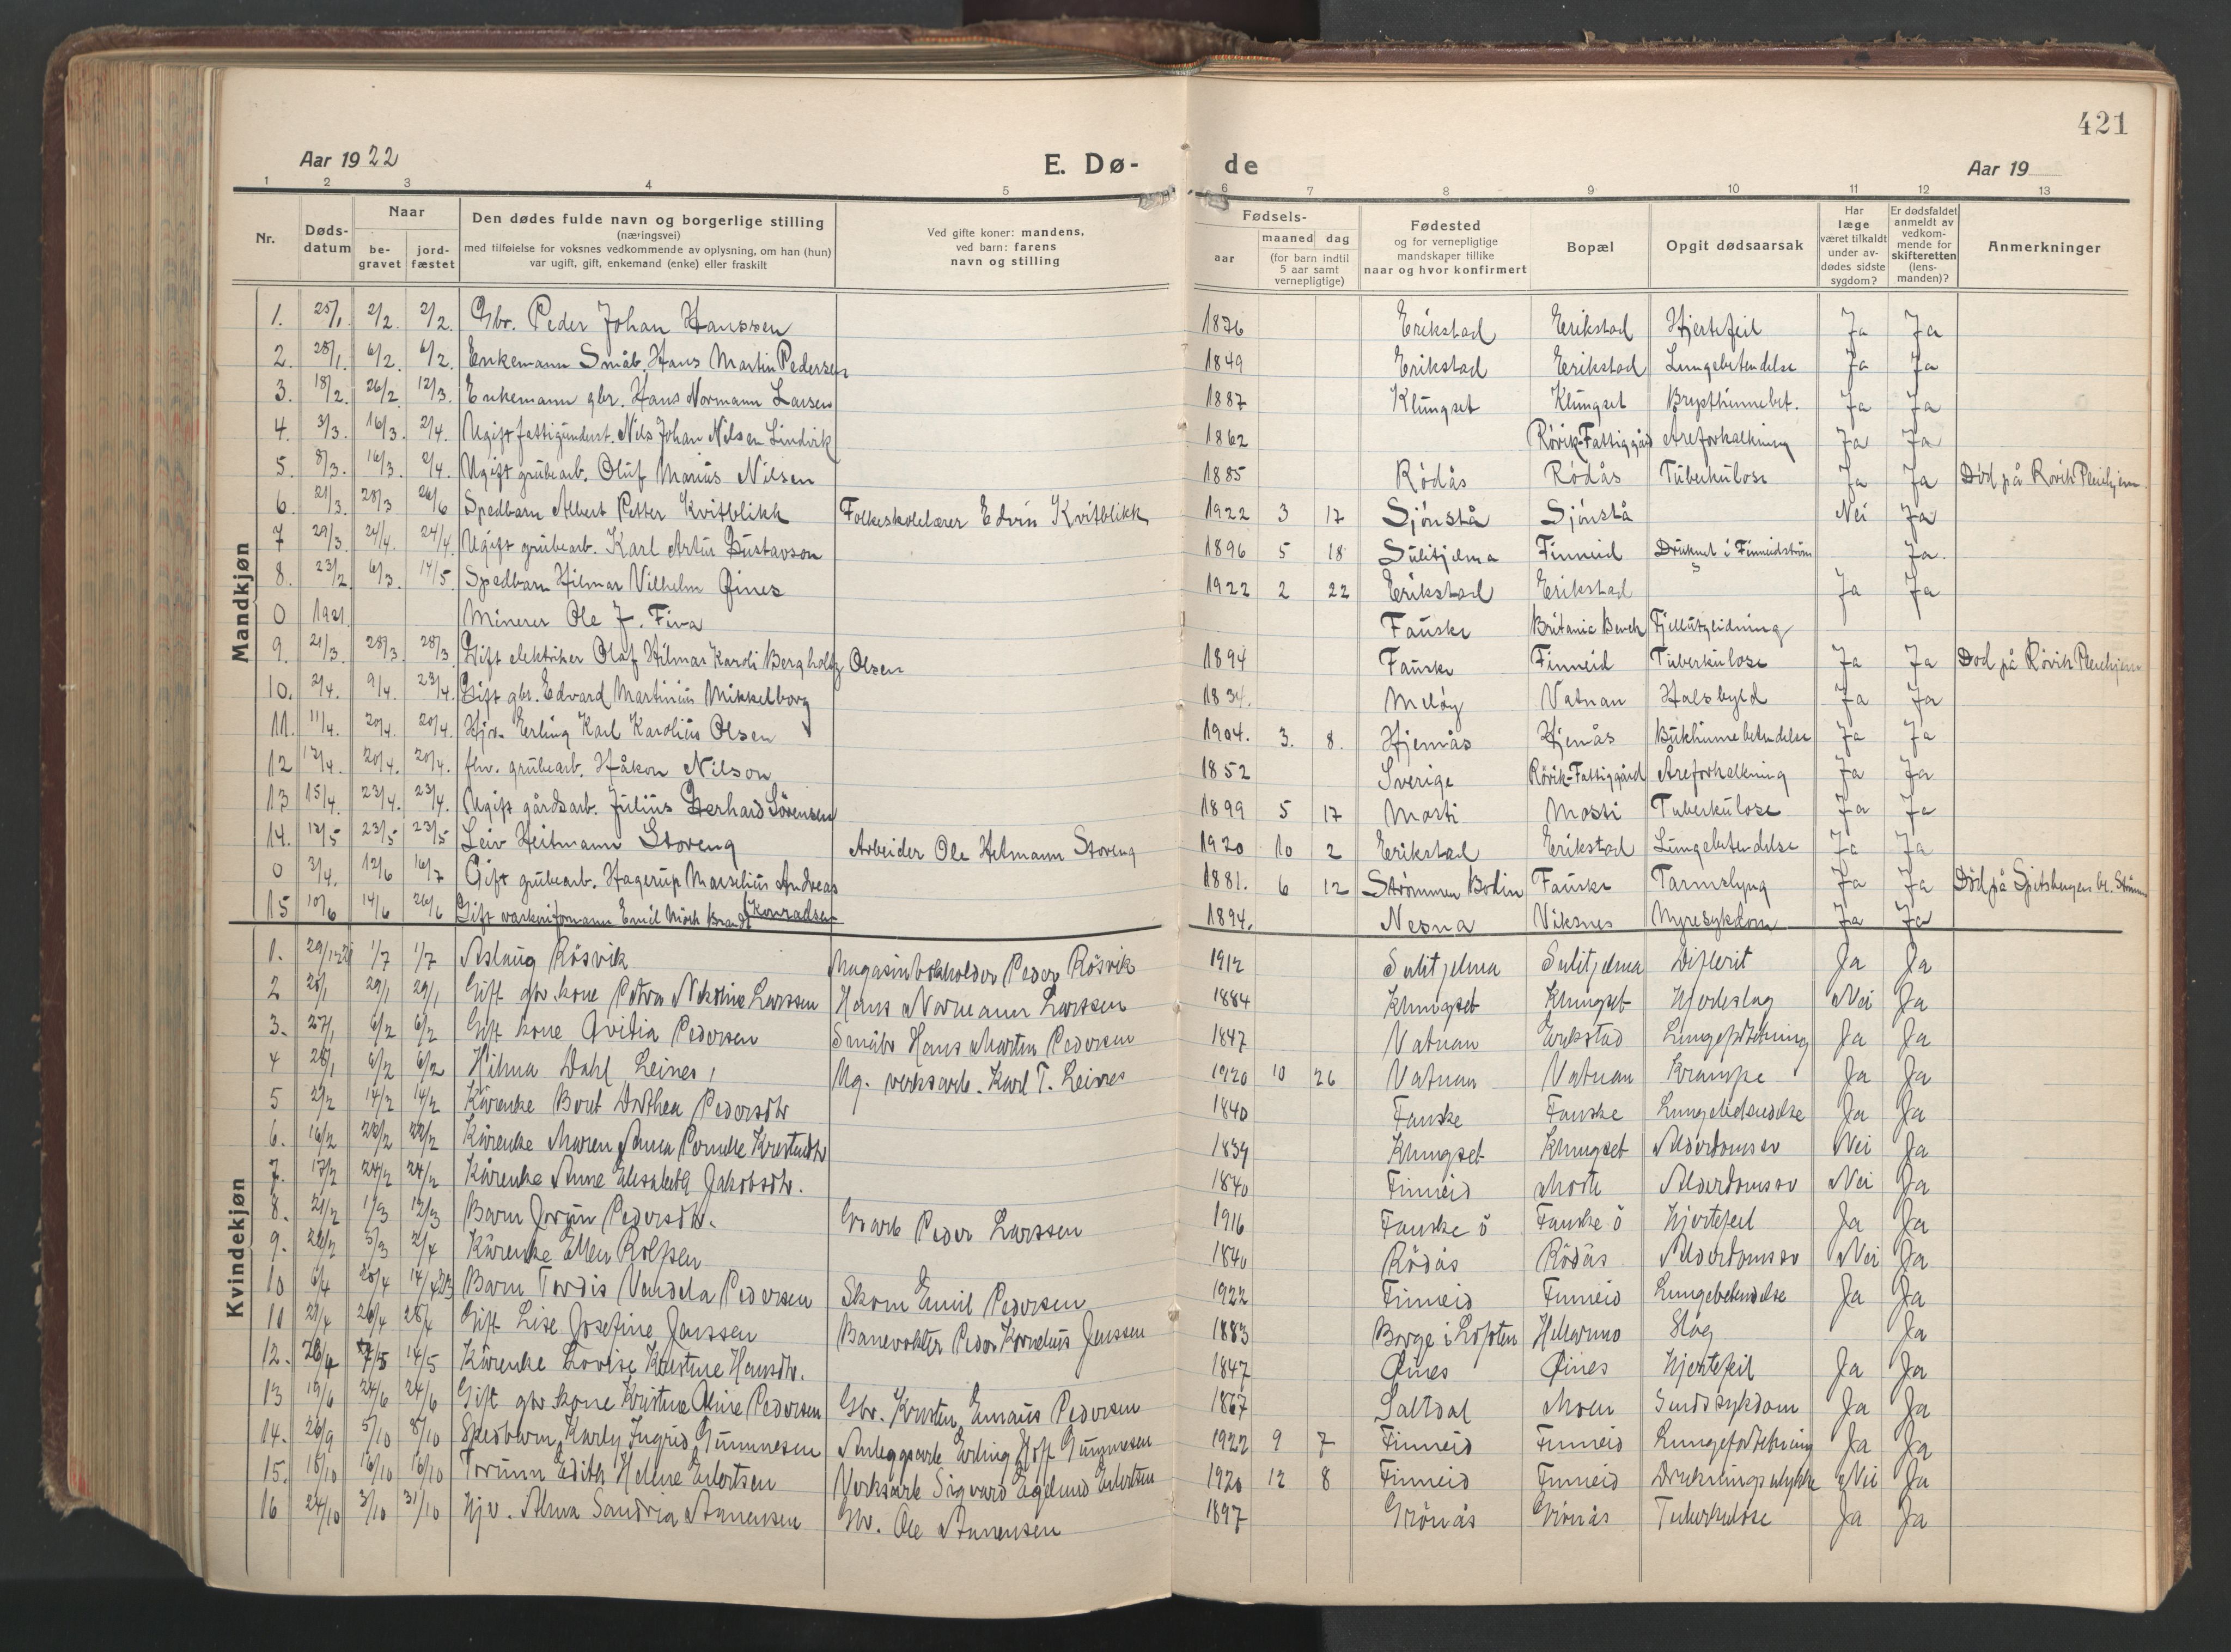 421
Aar 1922
E. Dø-
de
Aar 19
1 2 3 4 5 6 7 8 9 10 11 12 13
Nr.
Døds-
datum
Naar
be-
gravet
jord-
fæstet
Den dødes fulde navn og borgerlige stilling
(næringsvei)
med tilføielse for voksnes vedkommende av oplysning, om han (hun)
var ugift, gift, enkemand (enke) eller fraskilt
Ved gifte koner: mandens,
ved barn: farens
navn og stilling
Fødsels-
aar
maaned dag
(for barn indtil
5 aar samt
vernepligtige)
Fødested
og for vernepligtige
mandskaper tillike
naar og hvor konfirmert
Bopæl
Opgit dødsaarsak
Har
læge
været tilkaldt
under av-
dødes sidste
sygdom?
Er dødsfaldet
anmeldt av
vedkom-
mende for
skifteretten
(lens-
manden)?
Anmerkninger
Mandkjøn
1. 25/1. 2/2. 2/2. Gbr. Peder Johan Hanssen 1876 Erikstad Erikstad Hjertefeil Ja Ja
2. 28/1. 6/2. 6/2. Enkemann Småb. Hans Martin Pedersen 1849 Erikstad Erikstad Lungebetendelse Ja Ja
3. 18/2. 26/2. 12/3. Enkemann gbr. Hans Normann Larsen 1887 Klungset Klungset Brysthinnebet. Ja Ja
4. 3/3. 16/3. 2/4. Ugift fattigunderst. Nils Johan Nilsen Lindvik 1862 Rövik-Fattiggård Åreforkalkning Ja Ja
5. 8/3. 16/3. 2/4. Ugift grubearb. Oluf Marius Nilsen 1885 Rödås Rödås Tuberkulose Ja Ja Död på Rövik Pleiehjem.
6. 21/3. 28/3 26/6 Spedbarn Albert Petter Kvitblikk Folkeskolelærer Edvin Kvitblikk 1922 3 17 Sjönstå Sjönstå Nei Ja
7 29/3. 24/4. 24/4. Ugift grubearb. Karl Artur Gustavson 1896 5 18 Sulitjelma Finneid Druknet i Finneidström Ja.
8. 23/2. 6/3. 14/5 Spedbarn Hilmar Vilhelm Öines 1922 2 22 Erikstad Erikstad Ja Ja
0 1921. Minerer Ole J. Fiva Fauske Britanic Bench Fjellutglidning
9. 21/3. 28/3. 28/3. Gift elektriker Olaf Hilmar Karoli Bergholtz Olsen 1894 Fauske Finneid Tuberkulose Ja Ja Död på Rövik Pleiehjem
10. 2/4. 9/4. 23/4. Gift gbr. Edvard Martinius Mikkelborg 1834. Melöy Vatnan Halsbyld Ja Ja
11. 11/4. 20/4. 20/4. Hjv. Erling Karl Karolius Olsen 1904. 3. 8. Hjemås Hjemås Bukhinnebetendelse Ja Ja
12 12/4. 20/4. 20/4. fhv. grubearb. Håkon Nilson 1852 Sverige Rövik-Fattiggård Åreforkalkning Ja Ja
13 15/4. 23/4. 23/4. Ugift gårdsarb. Julius Gerhard Sörensen 1899 5 17 Mosti Mosti Tuberkulose Ja Ja
14. 12/5 23/5 23/5 Leiv Heitmann Storeng Arbeider Ole Helmann Storeng 1920 10 2 Erikstad Erikstad Lungebetendelse Ja Ja
0 3/4. 12/6 16/7 Gift grubearb. Hagerup Marselius Andreas 1881. 6 12 Strömmen Bodin Fauske Tarmslyng Ja Ja Död på Spitsbergen
15 10/6 14/6 26/6 Gift Emil Mörk Brandt Konradsen 1894. Nesna Viksnes Nyresykdom Ja Ja
Kvindekjøn
1. 29/12 21 1/7 1/7 Aslaug Rösvik Magasinforholder Peder Rösvik 1912 Sulitjelma Sulitjelma Difterit Ja Ja
2 20/1 29/1 29/1 Gift gbr. kone Petra Nikoline Larssen Hans Normann Larssen 1884 Klungset Klungset Hjerteslag Nei Ja
3. 27/1 6/2 6/2 Gift kone Ovidia Pedersen Småbr Hans Martin Pedersen 1847 Vatnan Erikstad Ja Ja
4 28/1 6/2 6/2 Hilma Dahl Leines, Ug. verksarb. Karl T. Leines 1920 10 26 Vatnan Vatnan Krampe Ja Ja
5 2/2 14/2 14/2 Kårenke Beret Dorthea Pedersdtr 1840 Fauske Fauske Lungebetendelse Ja Ja
6. 16/2 22/2 22/2 Kårenke Maren Anna Pernelle Kristensdtr 1839 Klungset Klungset Alderdomssv Nei Ja
7. 17/2 24/2 24/2 Kårenke Anne Elisabeth Jakobsdtr. 1840 Finneid Moste Alderdomssv Nei Ja
8. 21/2 1/3 12/3 Barn Jorunn Pedersdtr. Grarb Peder Larssen 1916 Fauske ö Fauske ö Hjertefeil Ja Ja
9. 26/2 5/3 2/4 Kårenke Ellen Rolfsen 1840 Rödås Rödås Alderdomssv Nei Ja
10 6/4 20/4 14/4 23 Barn Tordis Vendela Pedersen Skom Emil Pedersen 1922 Finneid Finneid Lungebetendelse Ja Ja
11 21/4 26/4 28/4 Gift Lise Josefine Jenssen Banevokter Peder Kornelius Jenssen 1883 Borge i Lofoten Hellarmo Slag Ja
12. 26/4 7/5 14/5 Kårenke Lovise Kristine Hansdtr. 1847 Öines Öines Hjertefeil Ja Ja
13 19/6 24/6 24/6 Gift gbr. kone Kristine Oline Pedersen Gbr. Kristen Emaus Pedersen 1867 Saltdal Moen Sindssykdom Ja Ja
14. 26/9 5/10 8/10 Spedbarn Karly Ingrid Gunnnesen Anleggsarb Erling Hoff Gunnnesen 1922 9 7 Finneid Finneid Ja Ja
15. 10/10 16/10 16/10 Torunn Edith Helene Evertsen Verksarb Sigvard Egelund Evertsen 1920 12 8 Finneid Finneid Drukningsulykke Nei Ja
16 24/10 3/10 31/10 Hjv. Alma Sandria Annensen Gbr. Ole Annensen 1897 Grönås Grönås Tuberkulose Ja Ja